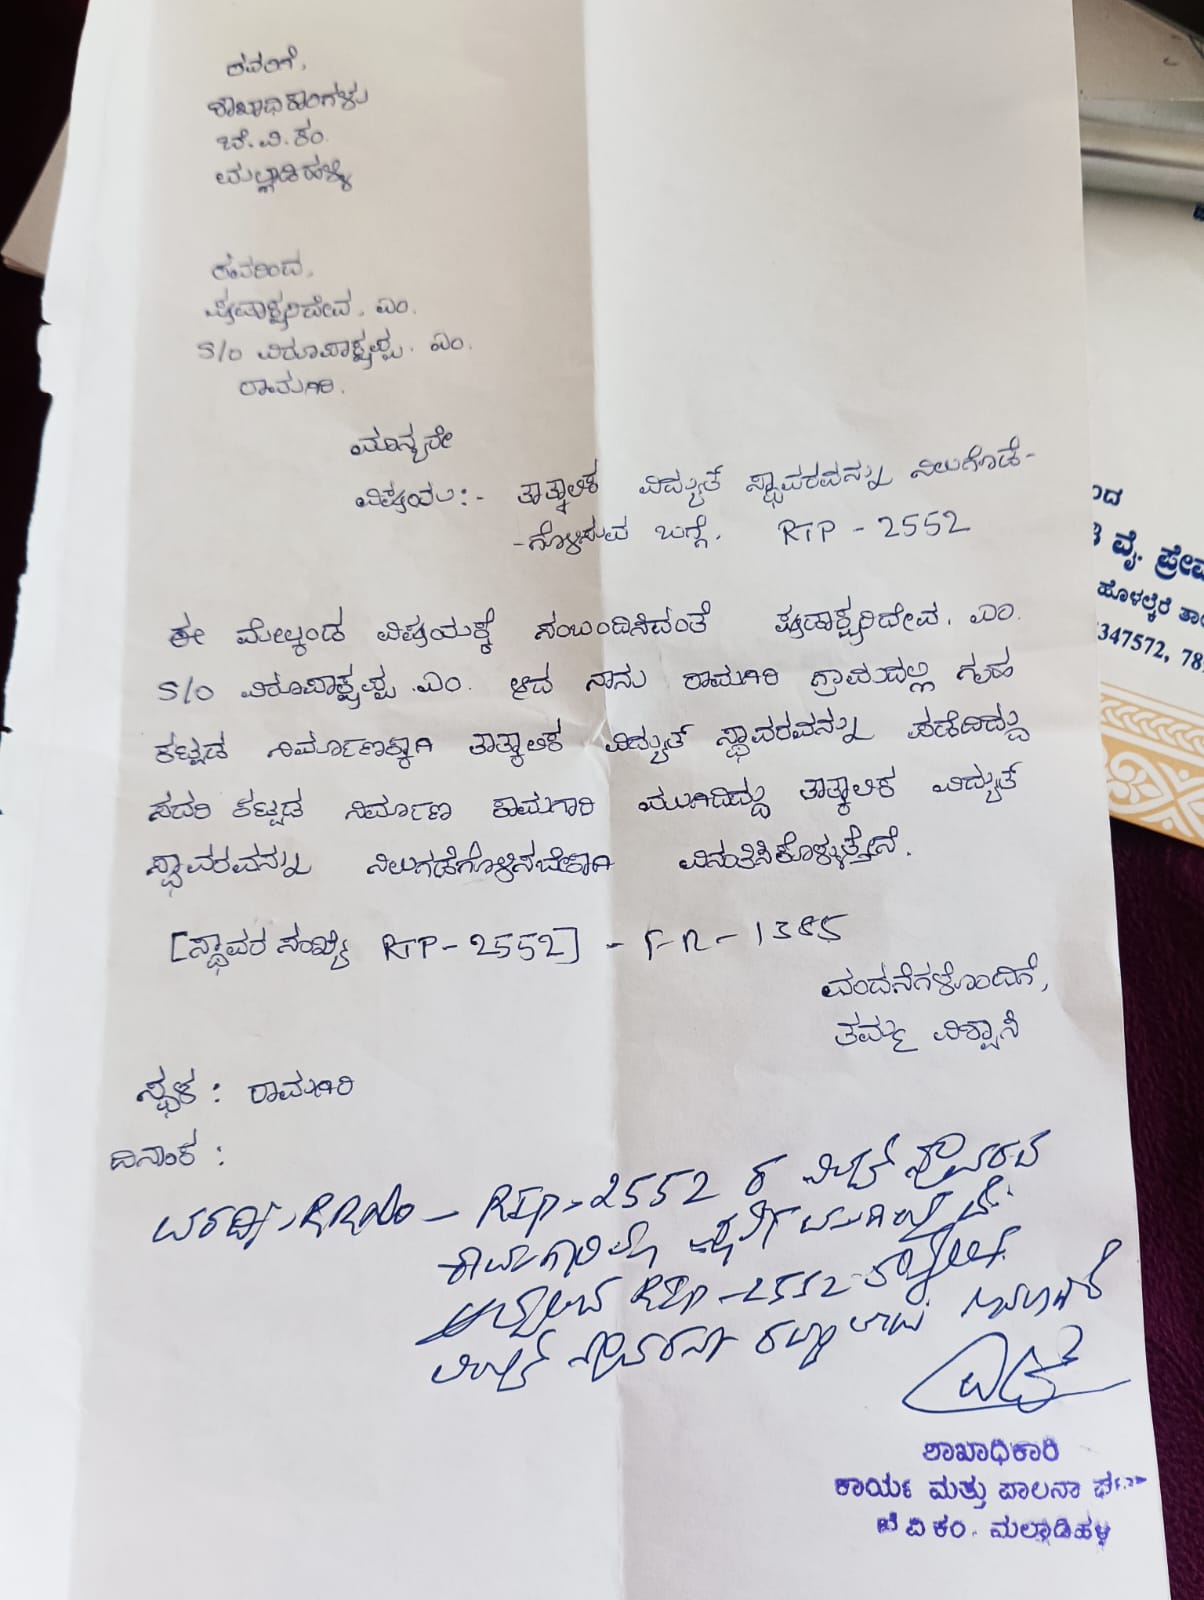 ರವರಿಗೆ,
ಶಾಖಾಧಿಕಾರಿಗಳು
ಬೆ.ವಿ.ಕಂ.
ಮಲ್ಲಾಡಿಹಳ್ಳಿ
ಇವರಿಂದ,
ಷಡಾಕ್ಷರಿದೇವ. ಎಂ.
S/o ವಿರೂಪಾಕ್ಷಪ್ಪ. ಎಂ.
ರಾಮಗಿರಿ.
ಮಾನ್ಯರೇ
ವಿಷಯ:- ತಾತ್ಕಾಲಿಕ ವಿದ್ಯುತ್ ಸ್ಥಾವರವನ್ನು ನಿಲುಗೊಡೆ-
-ಗೊಳಿಸುವ ಬಗ್ಗೆ. RTP - 2552
ಈ ಮೇಲ್ಕಂಡ ವಿಷಯಕ್ಕೆ ಸಂಬಂದಿಸಿದಂತೆ ಷಡಾಕ್ಷರಿದೇವ. ಎಂ.
S/o ವಿರೂಪಾಕ್ಷಪ್ಪ .ಎಂ. ಆದ ನಾನು ರಾಮಗಿರಿ ಗ್ರಾಮದಲ್ಲಿ ಗೃಹ
ಕಟ್ಟಡ ನಿರ್ಮಾಣಕ್ಕಾಗಿ ತಾತ್ಕಾಲಿಕ ವಿದ್ಯುತ್ ಸ್ಥಾವರವನ್ನು ಪಡೆದಿದ್ದು
ಸದರಿ ಕಟ್ಟಡ ನಿರ್ಮಾಣ ಕಾಮಗಾರಿ ಮುಗಿದಿದ್ದು ತಾತ್ಕಾಲಿಕ ವಿದ್ಯುತ್
ಸ್ಥಾವರವನ್ನು ನಿಲುಗಡೆಗೊಳಿಸಬೇಕಾಗಿ ವಿನಂತಿಸಿಕೊಳ್ಳುತ್ತೇನೆ.
[ಸ್ಥಾವರ ಸಂಖ್ಯೆ RTP - 2552] - F-R - 1385
ವಂದನೆಗಳೊಂದಿಗೆ,
ತಮ್ಮ ವಿಶ್ವಾಸಿ
ಸ್ಥಳ : ರಾಮಗಿರಿ
ದಿನಾಂಕ :
ವರದಿ:- RRNo - RTP - 2552 ರ ವಿದ್ಯುತ್ ಸ್ಥಾವರದ
ಕಾಮಗಾರಿ
RTP - 2552
ವಿದ್ಯುತ್
ಶಾಖಾಧಿಕಾರಿ
ಕಾರ್ಯ ಮತ್ತು ಪಾಲನಾ
ಬೆ ವಿ ಕಂ. ಮಲ್ಲಾಡಿಹಳ್ಳಿ
ವೈ. ಪ್ರೇಮ
ಹೊಳಲ್ಕೆರೆ
347572, 78